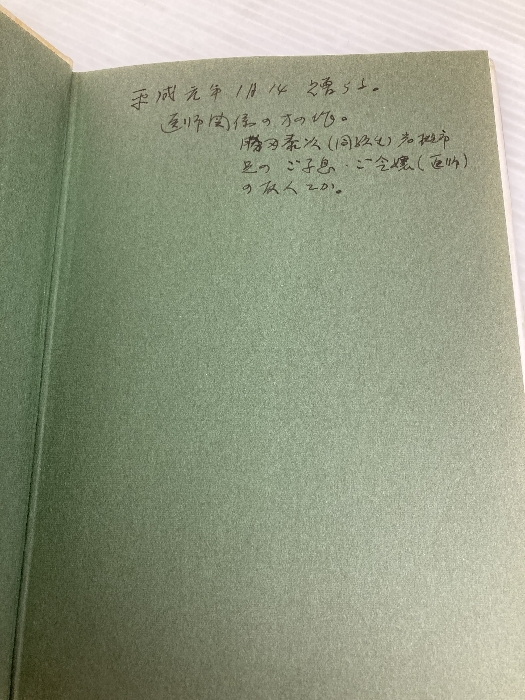 平成元年1月14 贈らる。
医師関係の方の作。
勝田泰次(同級生)岩槻市
兄の ご子息・ご令嬢(医師)
の友人とか。